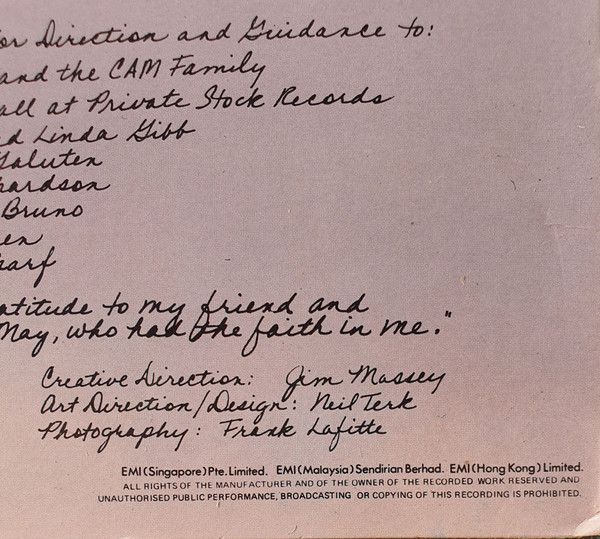 or Direction and Guidance to:
and the CAM Family
all at Private Stock Records
d Linda Gibb
Galuten
hardson
Bruno
en
harf
atitude to my friend and
May, who had the faith in me."
Creative Direction: Jim Massey
Art Direction/Design: Neil Terk
Photography: Frank Lafitte
EMI (Singapore) Pte. Limited. EMI (Malaysia) Sendirian Berhad. EMI (Hong Kong) Limited.
ALL RIGHTS OF THE MANUFACTURER AND OF THE OWNER OF THE RECORDED WORK RESERVED AND
UNAUTHORISED PUBLIC PERFORMANCE, BROADCASTING OR COPYING OF THIS RECORDING IS PROHIBITED.